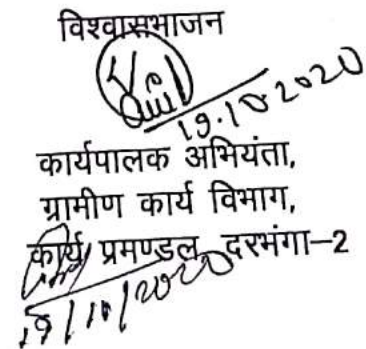 विश्वासभाजन
19.10.2020
कार्यपालक अभियंता,
ग्रामीण कार्य विभाग,
कार्य प्रमण्डल, दरभंगा-2
19/10/2020